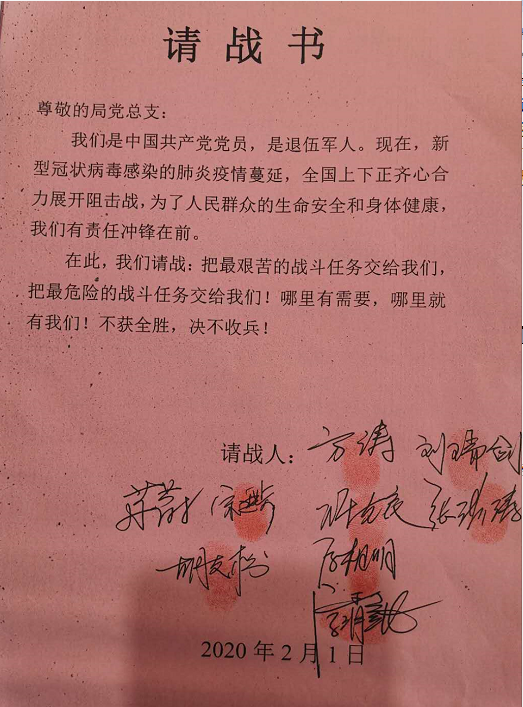 请战书
尊敬的局党总支：
我们是中国共产党党员，是退伍军人。现在，新
型冠状病毒感染的肺炎疫情蔓延，全国上下正齐心合
力展开阻击战，为了人民群众的生命安全和身体健康，
我们有责任冲锋在前。
在此，我们请战：把最艰苦的战斗任务交给我们，
把最危险的战斗任务交给我们！哪里有需要，哪里就
有我们！不获全胜，决不收兵！
请战人：方涛
胡友松
2020年2月1日